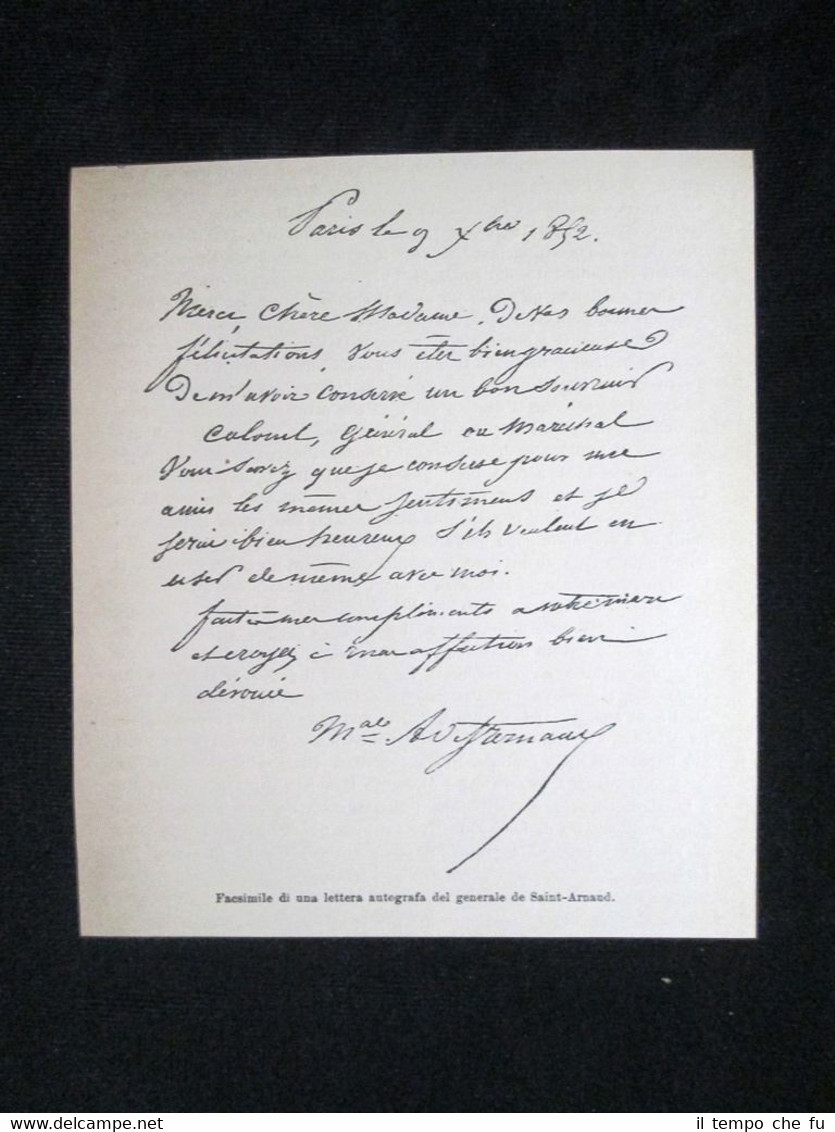 Paris le 9 Xbre 1852.
Merci chère Madame, de vos bonnes
félicitations, vous êtes bien gracieuse
de m'avoir conservé un bon souvenir
Colonel, Général ou Maréchal
Vous savez que je conserve pour mes
amis les mêmes sentimens et je
serai bien heureux s'ils veulent en
user de même avec moi.
faites mes compliments a votre mari
et croyez à mon affection bien
dévouée
Mal A de St Arnaud
Facsimile di una lettera autografa del generale de Saint-Arnaud.
HipPostcard.com
il tempo che fu